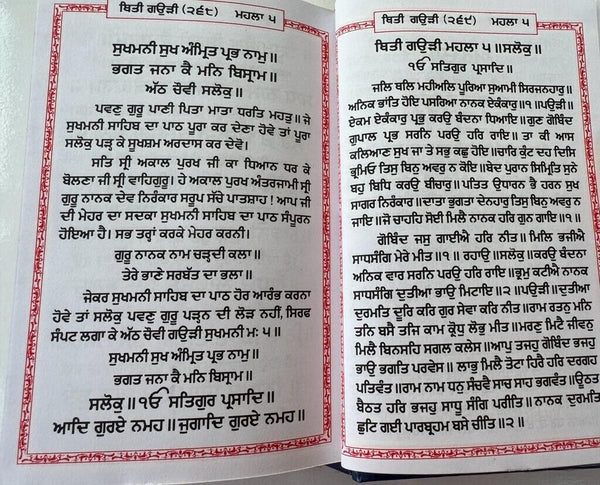 ਥਿਤੀ ਗਉੜੀ (੨੬੯) ਮਹਲਾ ੫
ਸੁਖਮਨੀ ਸੁਖ ਅੰਮ੍ਰਿਤ ਪ੍ਰਭ ਨਾਮੁ॥
ਭਗਤ ਜਨਾ ਕੈ ਮਨਿ ਬਿਸ੍ਰਾਮ॥
ਅੱਠ ਚੋਵੀ ਸਲੋਕੁ॥
ਪਵਣੁ ਗੁਰੂ ਪਾਣੀ ਪਿਤਾ ਮਾਤਾ ਧਰਤਿ ਮਹਤੁ॥ ਜੇ
ਸੁਖਮਨੀ ਸਾਹਿਬ ਦਾ ਪਾਠ ਪੂਰਾ ਕਰ ਦੇਣਾ ਹੋਵੇ ਤਾਂ ਪੂਰਾ
ਸਲੋਕੁ ਪੜ੍ਹ ਕੇ ਸੂਖਸ਼ਮ ਅਰਦਾਸ ਕਰ ਦੇਵੇ।
ਸਤਿ ਸ੍ਰੀ ਅਕਾਲ ਪੁਰਖ ਜੀ ਕਾ ਧਿਆਨ ਧਰ ਕੇ
ਬੋਲਣਾ ਜੀ ਸ੍ਰੀ ਵਾਹਿਗੁਰੂ। ਹੇ ਅਕਾਲ ਪੁਰਖ ਅੰਤਰਜਾਮੀ ਸ੍ਰੀ
ਗੁਰੂ ਨਾਨਕ ਦੇਵ ਨਿਰੰਕਾਰ ਸਰੂਪ ਸੱਚੇ ਪਾਤਸ਼ਾਹ ! ਆਪ ਜੀ
ਦੀ ਮੇਹਰ ਦਾ ਸਦਕਾ ਸੁਖਮਨੀ ਸਾਹਿਬ ਦਾ ਪਾਠ ਸੰਪੂਰਨ
ਹੋਇਆ ਹੈ। ਸਭ ਤਰ੍ਹਾਂ ਕਰਕੇ ਮੇਹਰ ਕਰਨੀ।
ਗੁਰੂ ਨਾਨਕ ਨਾਮ ਚੜ੍ਹਦੀ ਕਲਾ॥
ਤੇਰੇ ਭਾਣੇ ਸਰਬੱਤ ਦਾ ਭਲਾ॥
ਜੇਕਰ ਸੁਖਮਨੀ ਸਾਹਿਬ ਦਾ ਪਾਠ ਹੋਰ ਆਰੰਭ ਕਰਨਾ
ਹੋਵੇ ਤਾਂ ਸਲੋਕੁ ਪਵਣੁ ਗੁਰੂ ਪੜ੍ਹਨ ਦੀ ਲੋੜ ਨਹੀਂ, ਸਿਰਫ
ਸੰਪਟ ਲਗਾ ਕੇ ਅੱਠ ਚੋਵੀ ਗਉੜੀ ਸੁਖਮਨੀ ਮ: ੫॥
ਸੁਖਮਨੀ ਸੁਖ ਅੰਮ੍ਰਿਤ ਪ੍ਰਭ ਨਾਮੁ॥
ਭਗਤ ਜਨਾ ਕੈ ਮਨਿ ਬਿਸ੍ਰਾਮ॥
ਸਲੋਕੁ॥ੴ ਸਤਿਗੁਰ ਪ੍ਰਸਾਦਿ॥
ਆਦਿ ਗੁਰਏ ਨਮਹ॥ਜੁਗਾਦਿ ਗੁਰਏ ਨਮਹ॥
ਥਿਤੀ ਗਉੜੀ (੨੬੯) ਮਹਲਾ ੫
ਥਿਤੀ ਗਉੜੀ ਮਹਲਾ ੫॥ਸਲੋਕੁ॥
ੴ ਸਤਿਗੁਰ ਪ੍ਰਸਾਦਿ॥
ਜਲਿ ਥਲਿ ਮਹੀਅਲਿ ਪੂਰਿਆ ਸੁਆਮੀ ਸਿਰਜਨਹਾਰੁ॥
ਅਨਿਕ ਭਾਂਤਿ ਹੋਇ ਪਸਰਿਆ ਨਾਨਕ ਏਕੰਕਾਰੁ॥੧॥ਪਉੜੀ॥
ਏਕਮ ਏਕੰਕਾਰੁ ਪ੍ਰਭੁ ਕਰਉ ਬੰਦਨਾ ਧਿਆਇ॥ਗੁਣ ਗੋਬਿੰਦ
ਗੁਪਾਲ ਪ੍ਰਭ ਸਰਨਿ ਪਰਉ ਹਰਿ ਰਾਇ॥ ਤਾ ਕੀ ਆਸ
ਕਲਿਆਣ ਸੁਖ ਜਾ ਤੇ ਸਭੁ ਕਛੁ ਹੋਇ॥ਚਾਰਿ ਕੁੰਟ ਦਹ ਦਿਸਿ
ਭ੍ਰਮਿਓ ਤਿਸੁ ਬਿਨੁ ਅਵਰੁ ਨ ਕੋਇ॥ਬੇਦ ਪੁਰਾਨ ਸਿਮ੍ਰਿਤਿ ਸੁਨੇ
ਬਹੁ ਬਿਧਿ ਕਰਉ ਬੀਚਾਰੁ॥ਪਤਿਤ ਉਧਾਰਨ ਭੈ ਹਰਨ ਸੁਖ
ਸਾਗਰ ਨਿਰੰਕਾਰ॥ਦਾਤਾ ਭੁਗਤਾ ਦੇਨਹਾਰੁ ਤਿਸੁ ਬਿਨੁ ਅਵਰੁ ਨ
ਜਾਇ॥ਜੋ ਚਾਹਹਿ ਸੋਈ ਮਿਲੈ ਨਾਨਕ ਹਰਿ ਗੁਨ ਗਾਇ॥੧॥
ਗੋਬਿੰਦ ਜਸੁ ਗਾਈਐ ਹਰਿ ਨੀਤ॥ਮਿਲਿ ਭਜੀਐ
ਸਾਧਸੰਗਿ ਮੇਰੇ ਮੀਤ॥੧॥ਰਹਾਉ॥ਸਲੋਕੁ॥ਕਰਉ ਬੰਦਨਾ
ਅਨਿਕ ਵਾਰ ਸਰਨਿ ਪਰਉ ਹਰਿ ਰਾਇ॥ਭ੍ਰਮੁ ਕਟੀਐ ਨਾਨਕ
ਸਾਧਸੰਗਿ ਦੁਤੀਆ ਭਾਉ ਮਿਟਾਇ॥੨॥ਪਉੜੀ॥ਦੁਤੀਆ
ਦੁਰਮਤਿ ਦੂਰਿ ਕਰਿ ਗੁਰ ਸੇਵਾ ਕਰਿ ਨੀਤ॥ਰਾਮ ਰਤਨੁ ਮਨਿ
ਤਨਿ ਬਸੈ ਤਜਿ ਕਾਮੁ ਕ੍ਰੋਧੁ ਲੋਭੁ ਮੀਤ॥ਮਰਣੁ ਮਿਟੈ ਜੀਵਨੁ
ਮਿਲੈ ਬਿਨਸਹਿ ਸਗਲ ਕਲੇਸ॥ਆਪੁ ਤਜਹੁ ਗੋਬਿੰਦ ਭਜਹੁ
ਭਾਉ ਭਗਤਿ ਪਰਵੇਸ॥ ਲਾਭੁ ਮਿਲੈ ਤੋਟਾ ਹਿਰੈ ਹਰਿ ਦਰਗਹ
ਪਤਿਵੰਤ॥ਰਾਮ ਨਾਮ ਧਨੁ ਸੰਚਵੈ ਸਾਚ ਸਾਹ ਭਗਵੰਤ॥ਊਠਤ
ਬੈਠਤ ਹਰਿ ਭਜਹੁ ਸਾਧੂ ਸੰਗਿ ਪਰੀਤਿ॥ਨਾਨਕ ਦੁਰਮਤਿ
ਛੁਟਿ ਗਈ ਪਾਰਬ੍ਰਹਮ ਬਸੇ ਚੀਤਿ॥੨॥